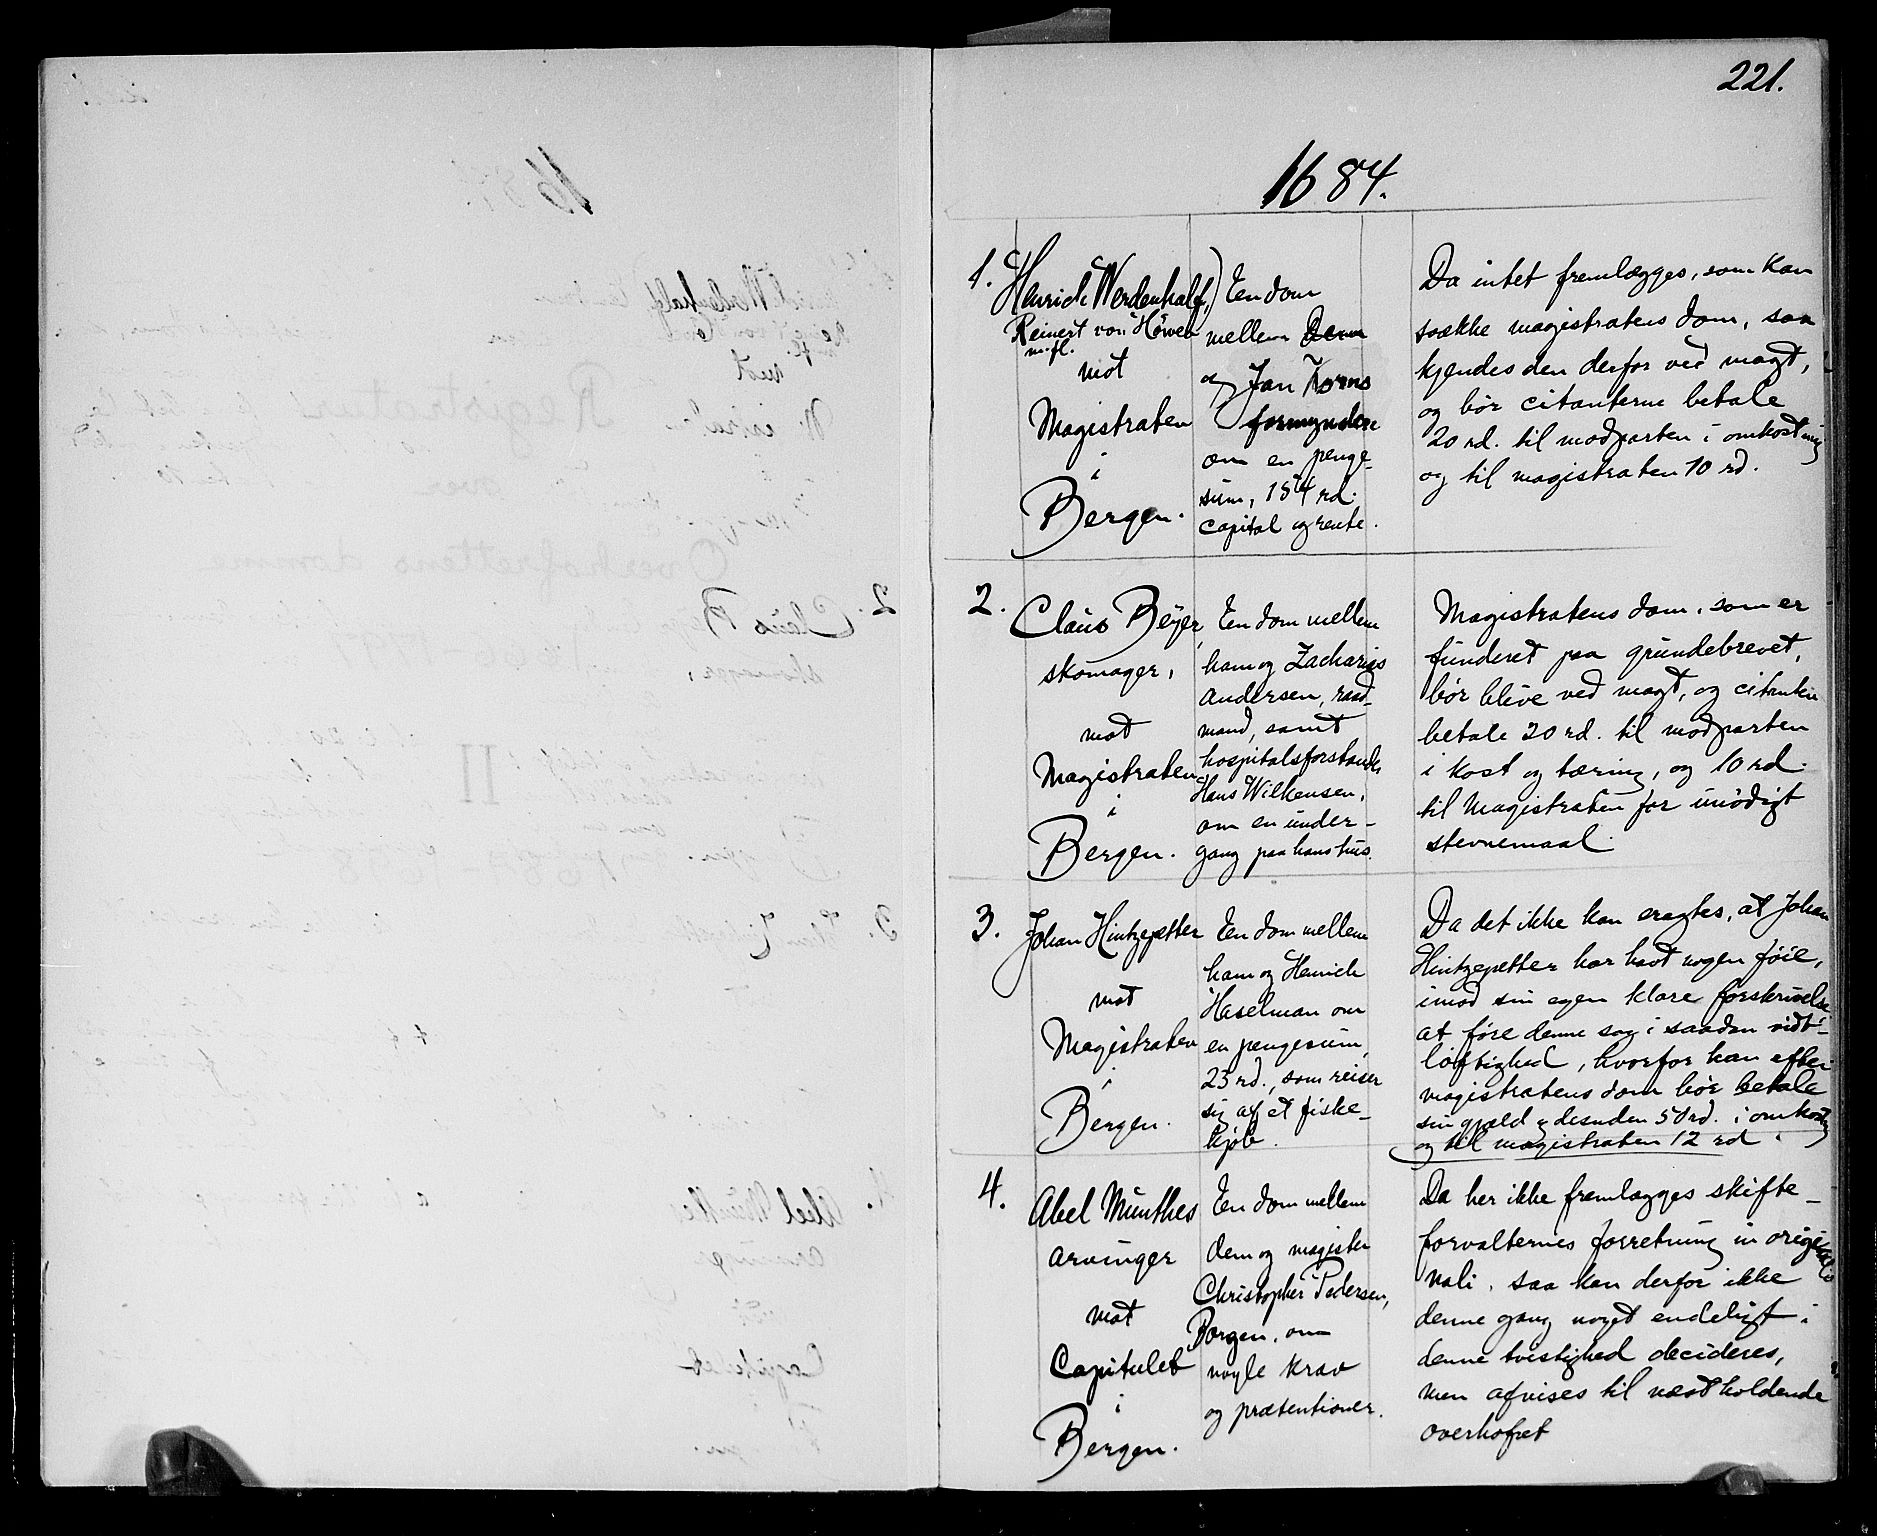 221.
1684.
1. Henrich Werdenhalf,
Reinert von Höven
m. fl.
mot
Magistraten
i
Bergen.
En dom
mellem Dem
og Jan Korns
formyndere
om en penge-
sum, 154 rd.
capital og rente.
Da intet fremlægges, som kan
svække magistratens dom, saa
kjendes den derfor ved magt,
og bör citanterne betale
20 rd. til modparten i omkostning
og til magistraten 10 rd.
2. Claus Beyer,
skomager,
mot
Magistraten
i
Bergen.
En dom mellem
ham og Zacharias
Andersen, raad-
mand, samt
hospitalsforstander
Hans Wilkensen,
om en under-
gang paa hans hus.
Magistratens dom, som er
funderet paa grundebrevet,
bör blive ved magt, og citanten
betale 20 rd. til modparten
i kost og tæring, og 10 rd.
til Magistraten for unödigt
stevnemaal.
3. Johan Hintzepetter
mot
Magistraten
i
Bergen.
En dom mellem
ham og Henrich
Haselman om
en pengesum,
23 rd., som reiser
sig af et fiske-
kjöb.
Da det ikke kan eragtes, at Johan
Hintzepetter har havt nogen föie,
imod sin egen klare forskrivelse
at före denne sag i saadan vidt-
löftighed, hvorfor han efter
magistratens dom bör betale
sin gjæld og desuden 50 rd. i omkostning
og til magistraten 12 rd.
4. Abel Munthes
arvinger
mot
Capitulet
i
Bergen.
En dom mellem
dem og magister
Christopher Pedersen,
Borgen, om
nogle krav
og prætentioner.
Da her ikke fremlægges skifte-
forvalternes forretning in origi-
nali, saa kan derfor ikke
denne gang noget endeligt i
denne tvistighed decideres,
men afvises til næstholdende
overhofret